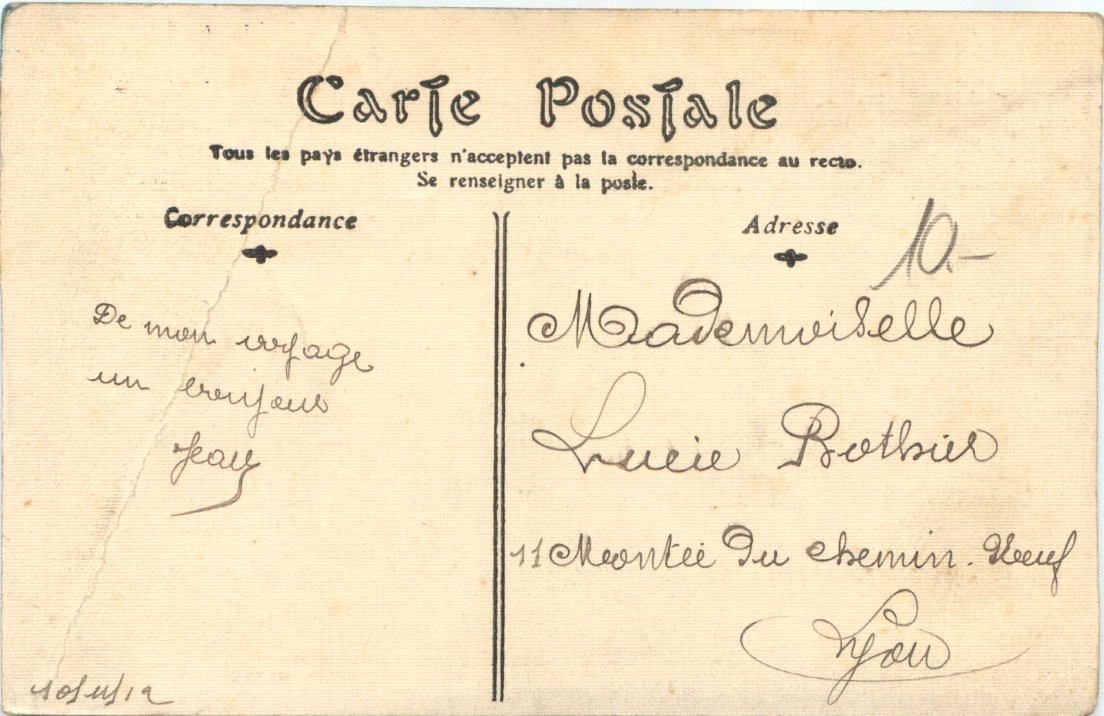 Carte Postale
Tous les pays étrangers n'acceptent pas la correspondance au recto.
Se renseigner à la poste.
Correspondance
De mon voyage
un bonjour
Jean
10/11/12
Adresse
10.-
Mademoiselle
Lucie Bothier
11 Montée du chemin. Neuf
Lyon